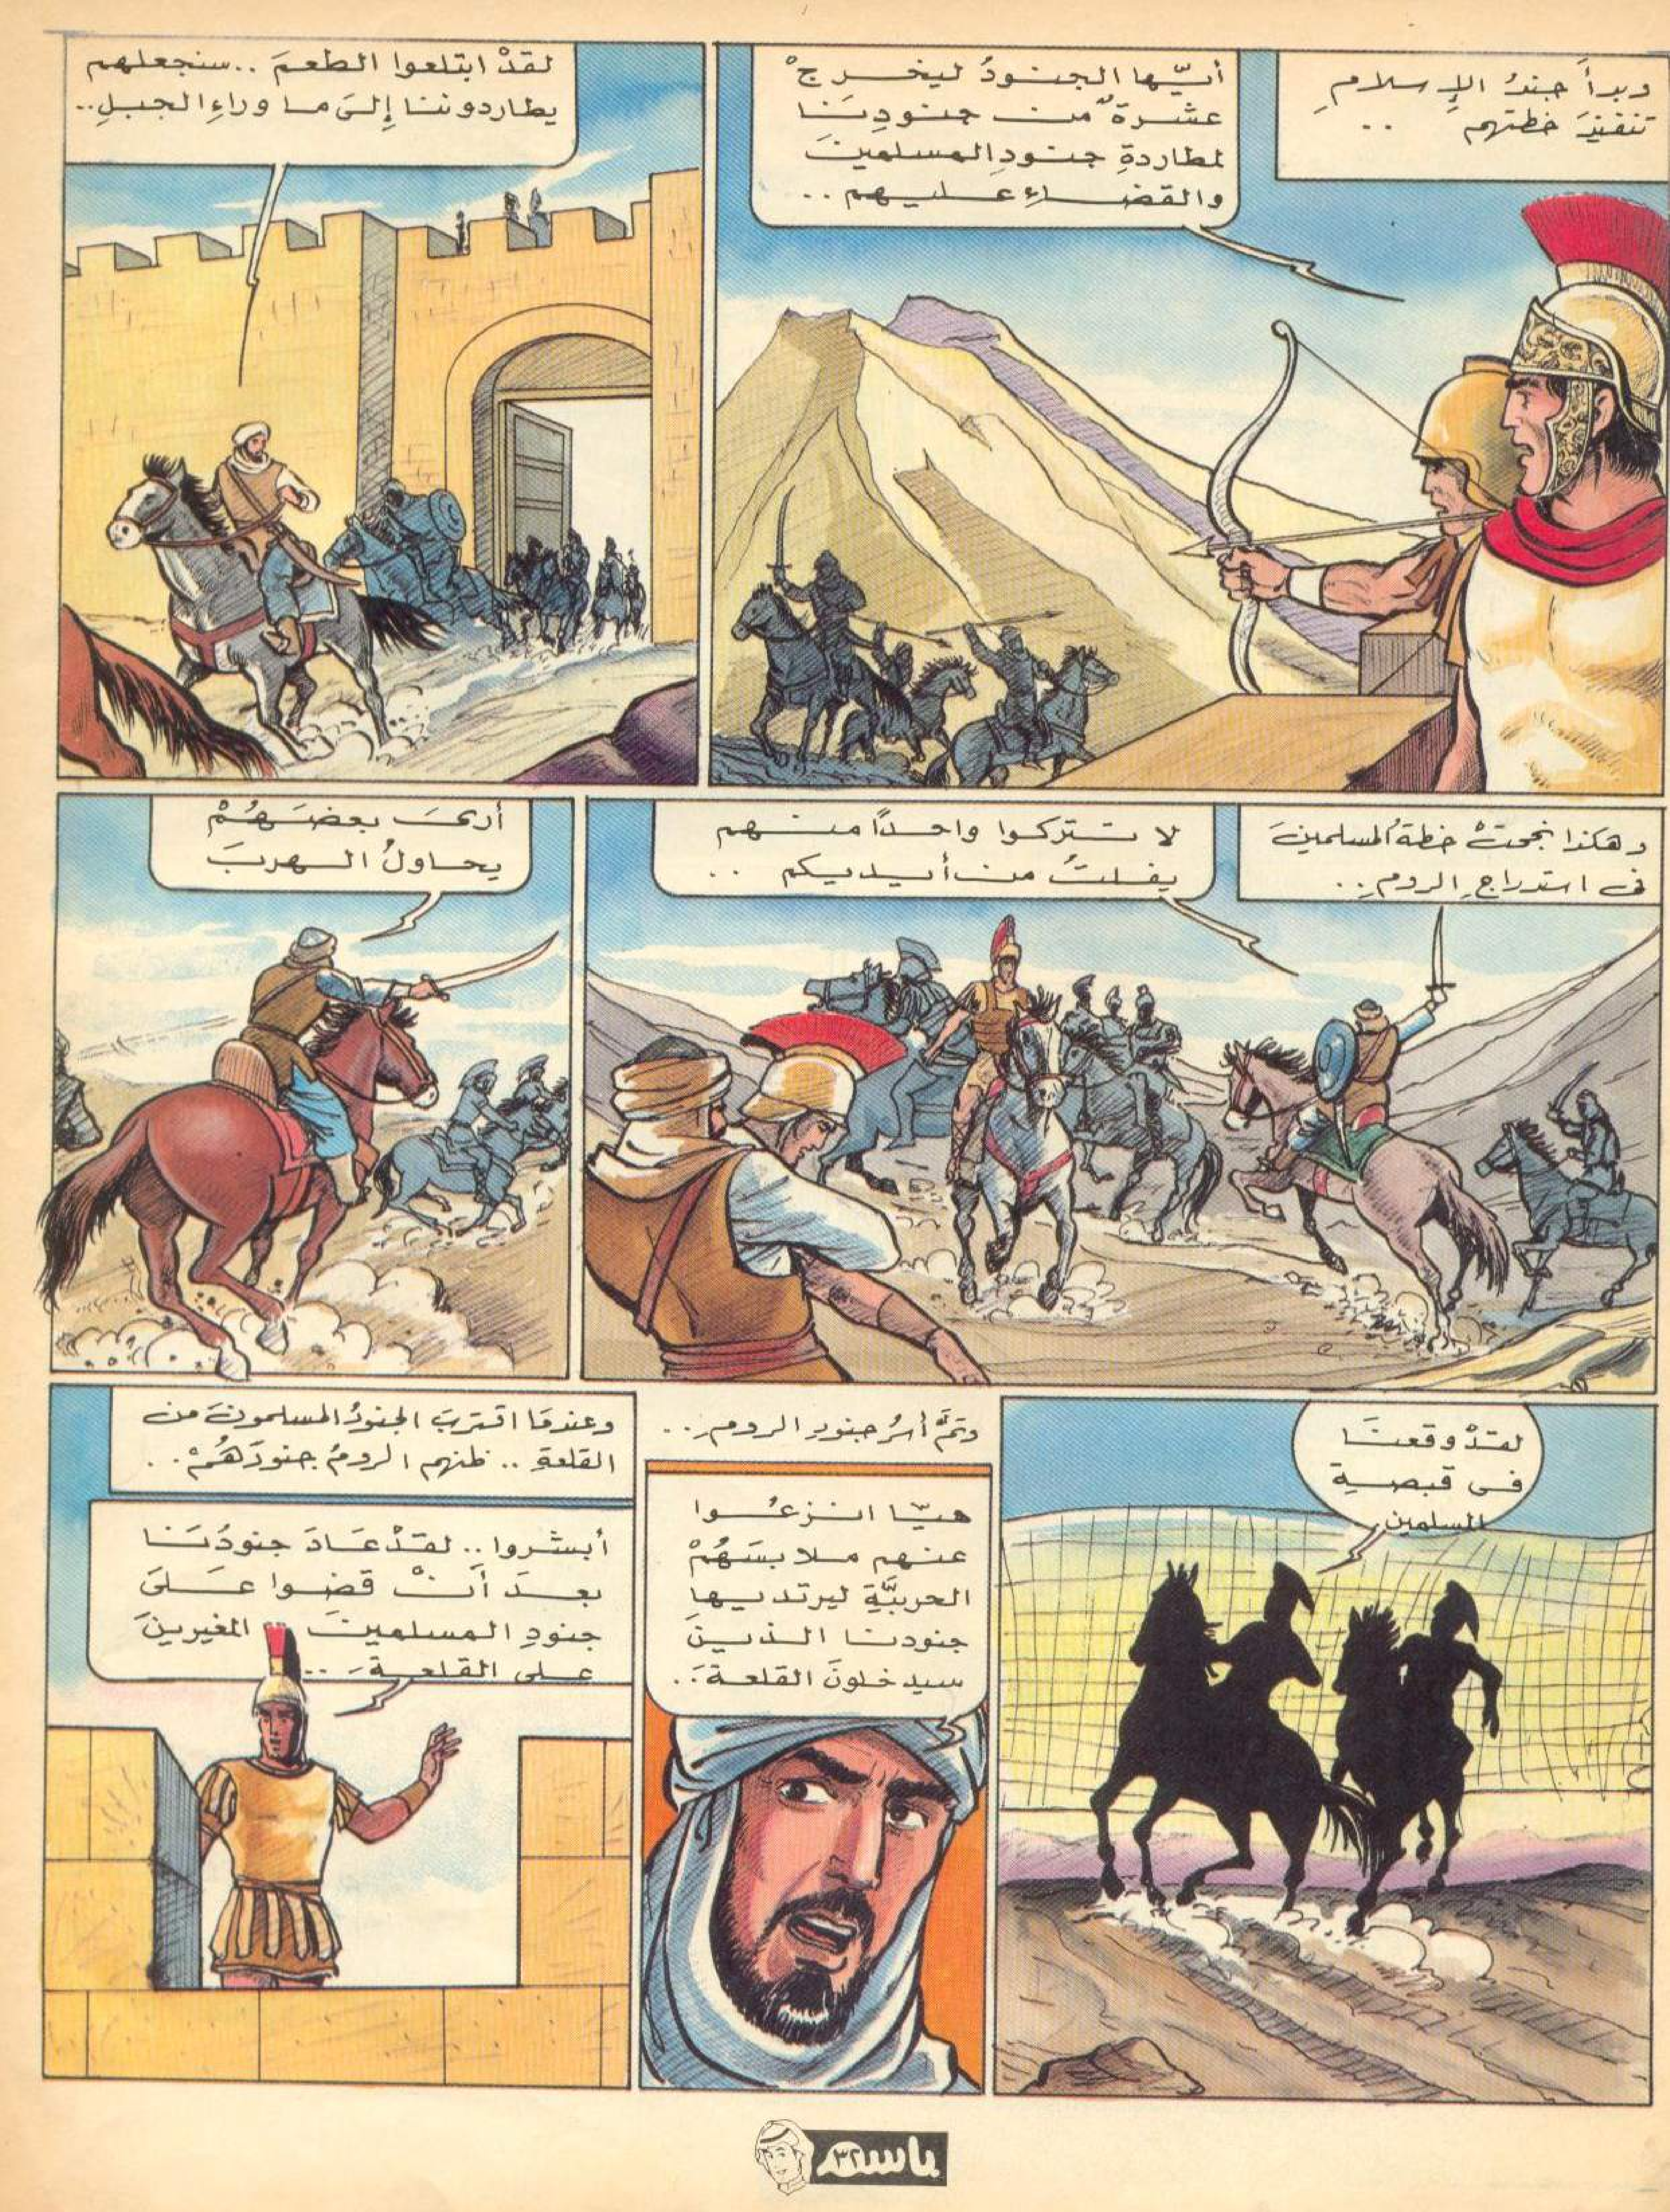 وبدأَ جندُ الإِسلامِ
تنفيذَ خطتهم ..
أيّها الجنودُ ليخرجْ
عشرةٌ من جنودِنَا
لمطاردةِ جنودِ المسلمينَ
والقضاءِ عليهم ..
لقدْ ابتلعوا الطعمَ .. سنجعلهم
يطاردوننا إِلىَ ما وراءِ الجبلِ ..
وهكذا نجحتْ خطةُ المسلمينَ
فى استدراجِ الرومِ ..
لا تتركوا واحداً منهم
يفلتُ من أيديكم ..
أرىَ بعضَهُمْ
يحاولُ الهربَ
لقدْ وقعنَا
فى قبضةِ
المسلمين
وتمَّ أسرُ جنودِ الرومِ ..
هيّا انزعُوا
عنهم ملابسَهُمْ
الحربيَّةِ ليرتديها
جنودنا الذينَ
سيدخلونَ القلعةَ ..
وعندمَا اقتربَ الجنودُ المسلمونَ من
القلعةِ .. ظنهم الرومُ جنودَهُمْ ..
أبشروا .. لقدْ عَادَ جنودُنَا
بعدَ أَنْ قضوا عَلىَ
جنودِ المسلمينَ المغيرينَ
على القلعةَ ..
باسم ٣٢